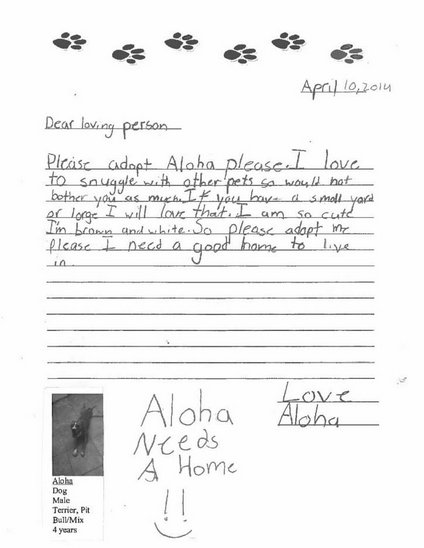 April 10, 2014
Dear loving person
Please adopt Aloha please. I love
to snuggle with other pets so would not
bother you as much. If you have a small yard
or large I will love that. I am so cute
I'm brown and white. So please adopt me
please I need a good home to live
in.
Love
Aloha
Aloha
Needs
A Home
!!
Aloha
Dog
Male
Terrier, Pit
Bull/Mix
4 years